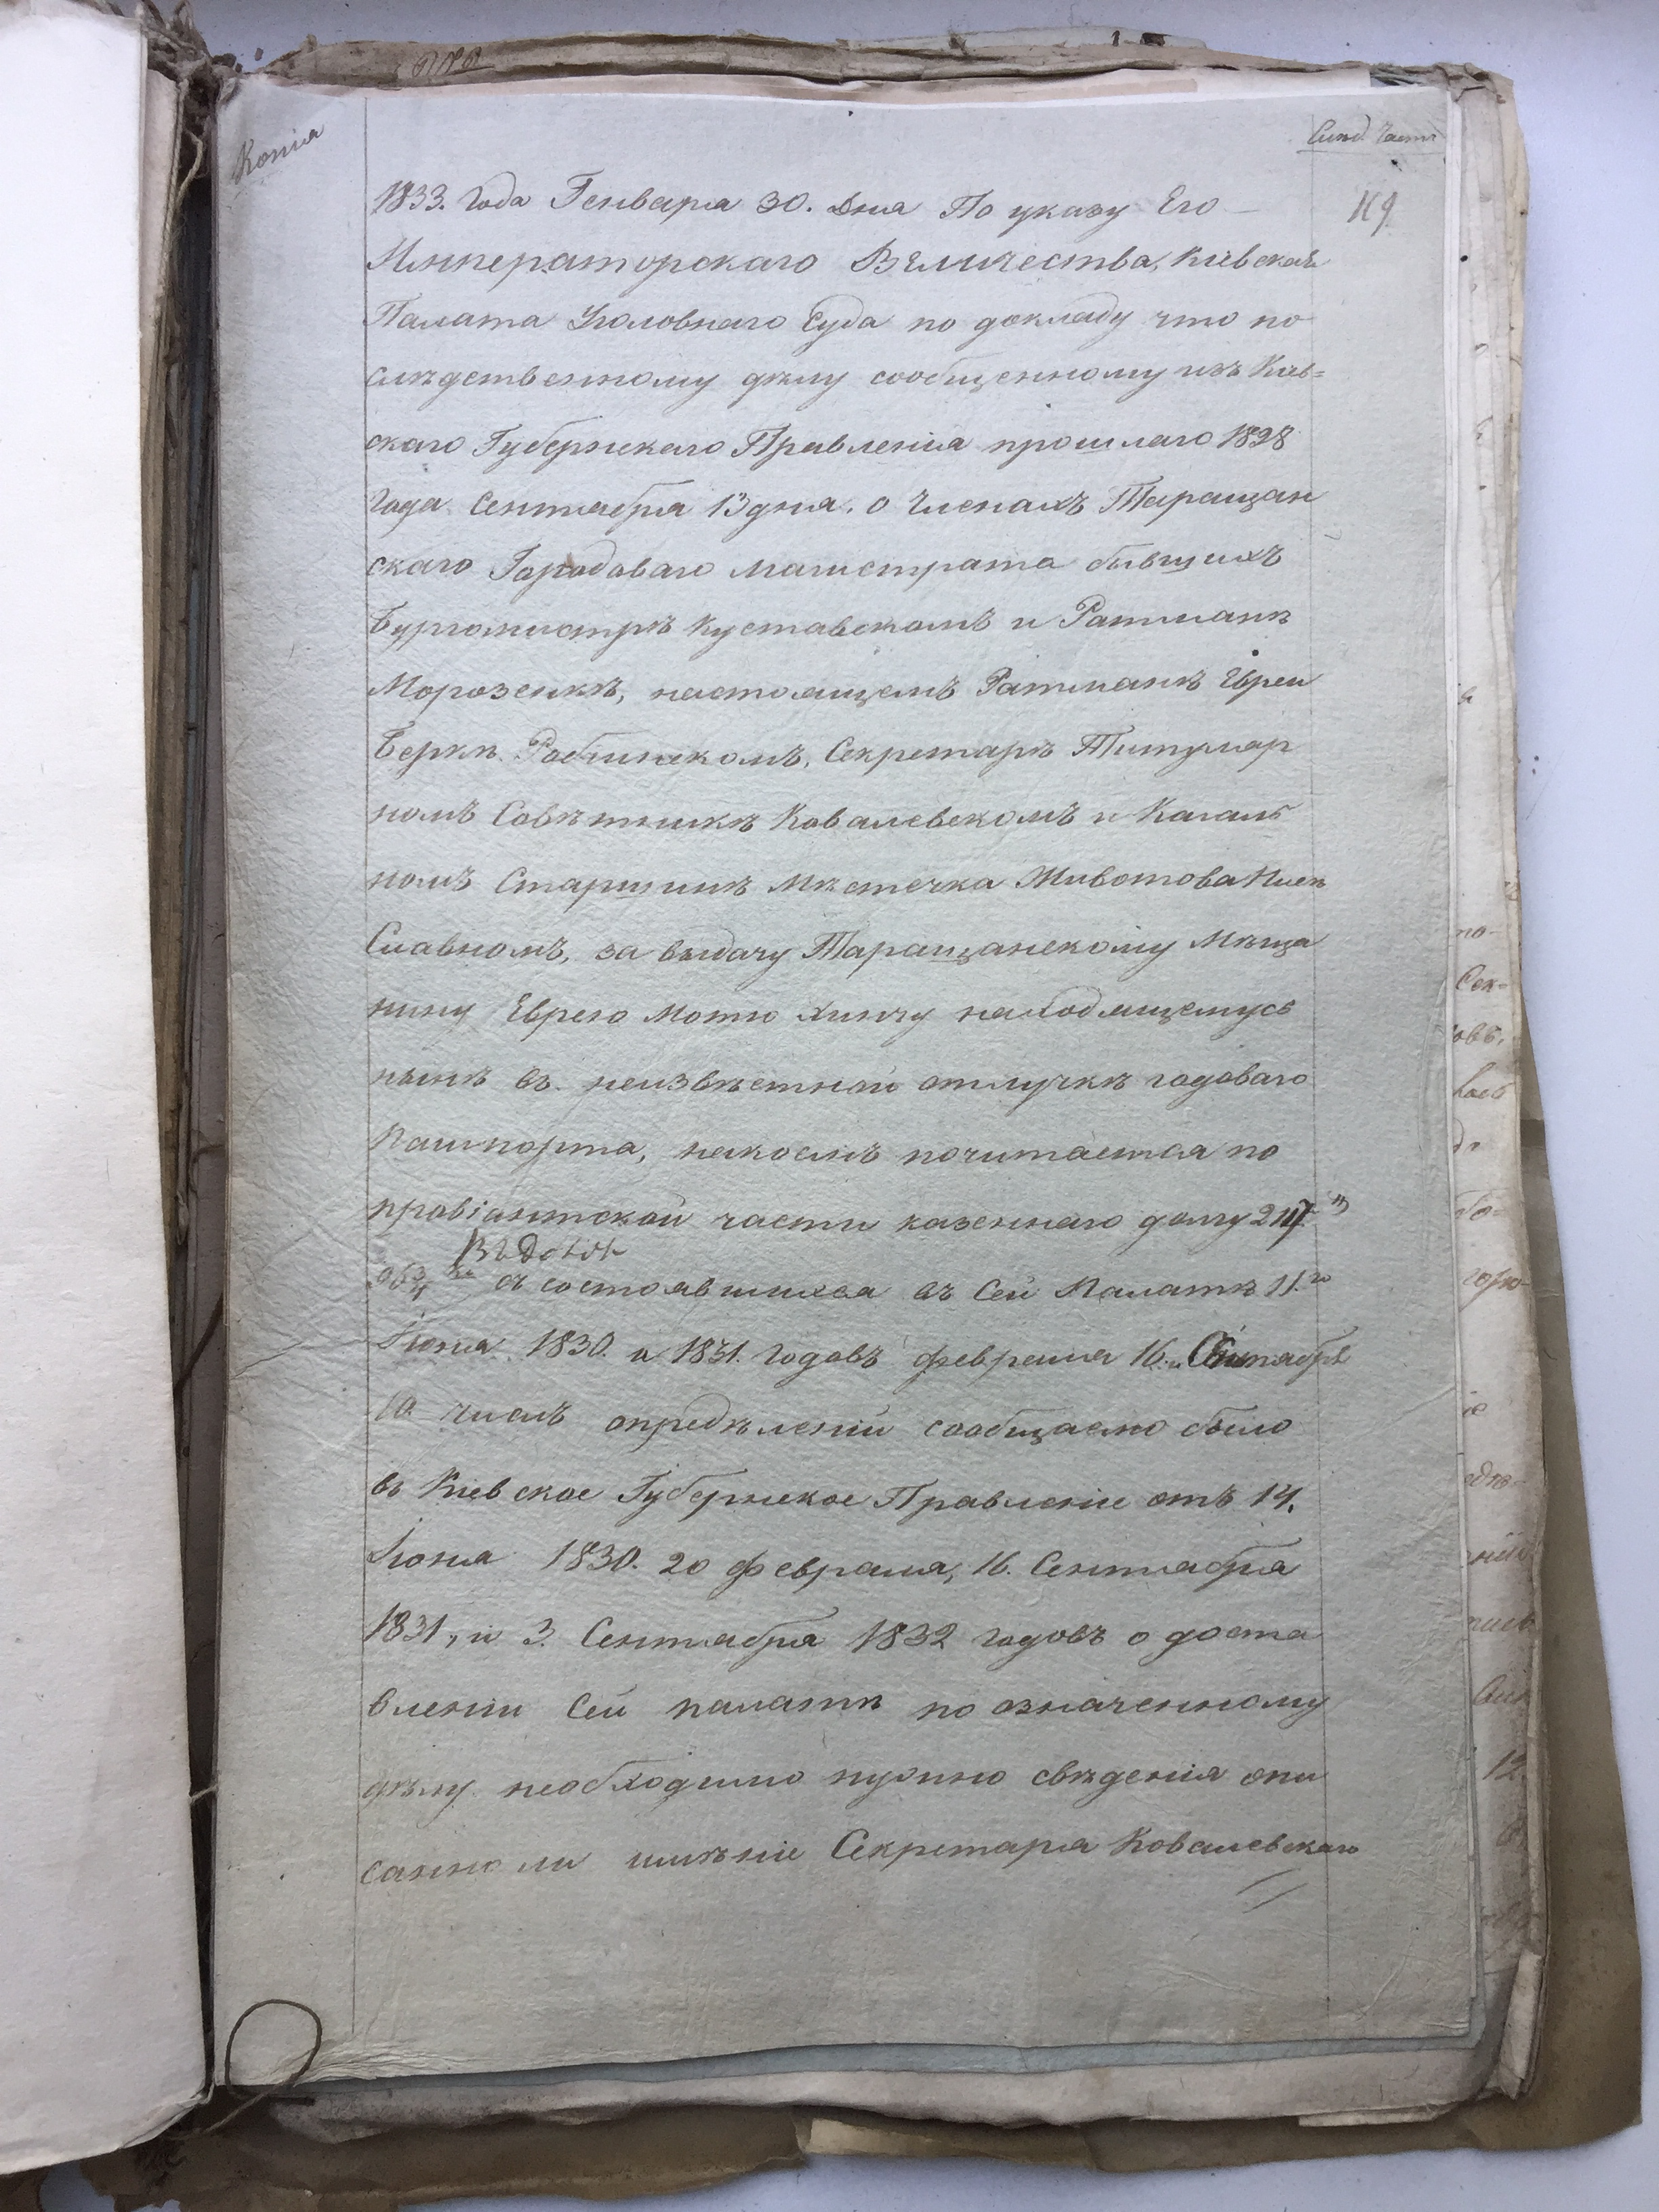 Копія
1833. Года Генваря 30. Дня По указу Его
119
Императорскаго Величества, Кіевская
Палата Уголовнаго Суда по докладу что по
слѣдственному дѣлу сообщенному изъ Кіев=
скаго Губернскаго Правленія прошлаго 1828
года Сентября 13 дня. о Членахъ Таращан
скаго Городоваго магистрата бывшихъ
Бургомистрѣ Куставскомъ и Ратманѣ
Морозенкѣ, настоящемъ Ратманѣ Евреи
Беркѣ Рабинскомъ, Секретарѣ Титуляр
номъ Совѣтникѣ Ковалевскомъ и Кагаль
номъ Старшинѣ Мѣстечка Животова
Славномъ, за выдачу Таращанскому Мѣща
нину Еврею Мотю Хинчу находящемусь
нынѣ въ неизвѣстной отлучкѣ годоваго
Пашпорта, накоемъ почитается по
провіантской части казеннаго долгу
состоявшихся въ Сей Палатѣ 11.го
Іюня 1830. и 1831. годовъ февраля 16. и Сентября
10. числъ опредѣленій сообщаемо было
въ Кіевское Губернское Правленіе отъ 14.
Іюня 1830. 20 февраля, 16. Сентября
1831, и 3. Сентября 1832 годовъ о доста
вленіи Сей палатѣ по означенному
дѣлу необходимо нужно свѣденія опи
санно ли имѣніе Секретаря Ковалевскаго